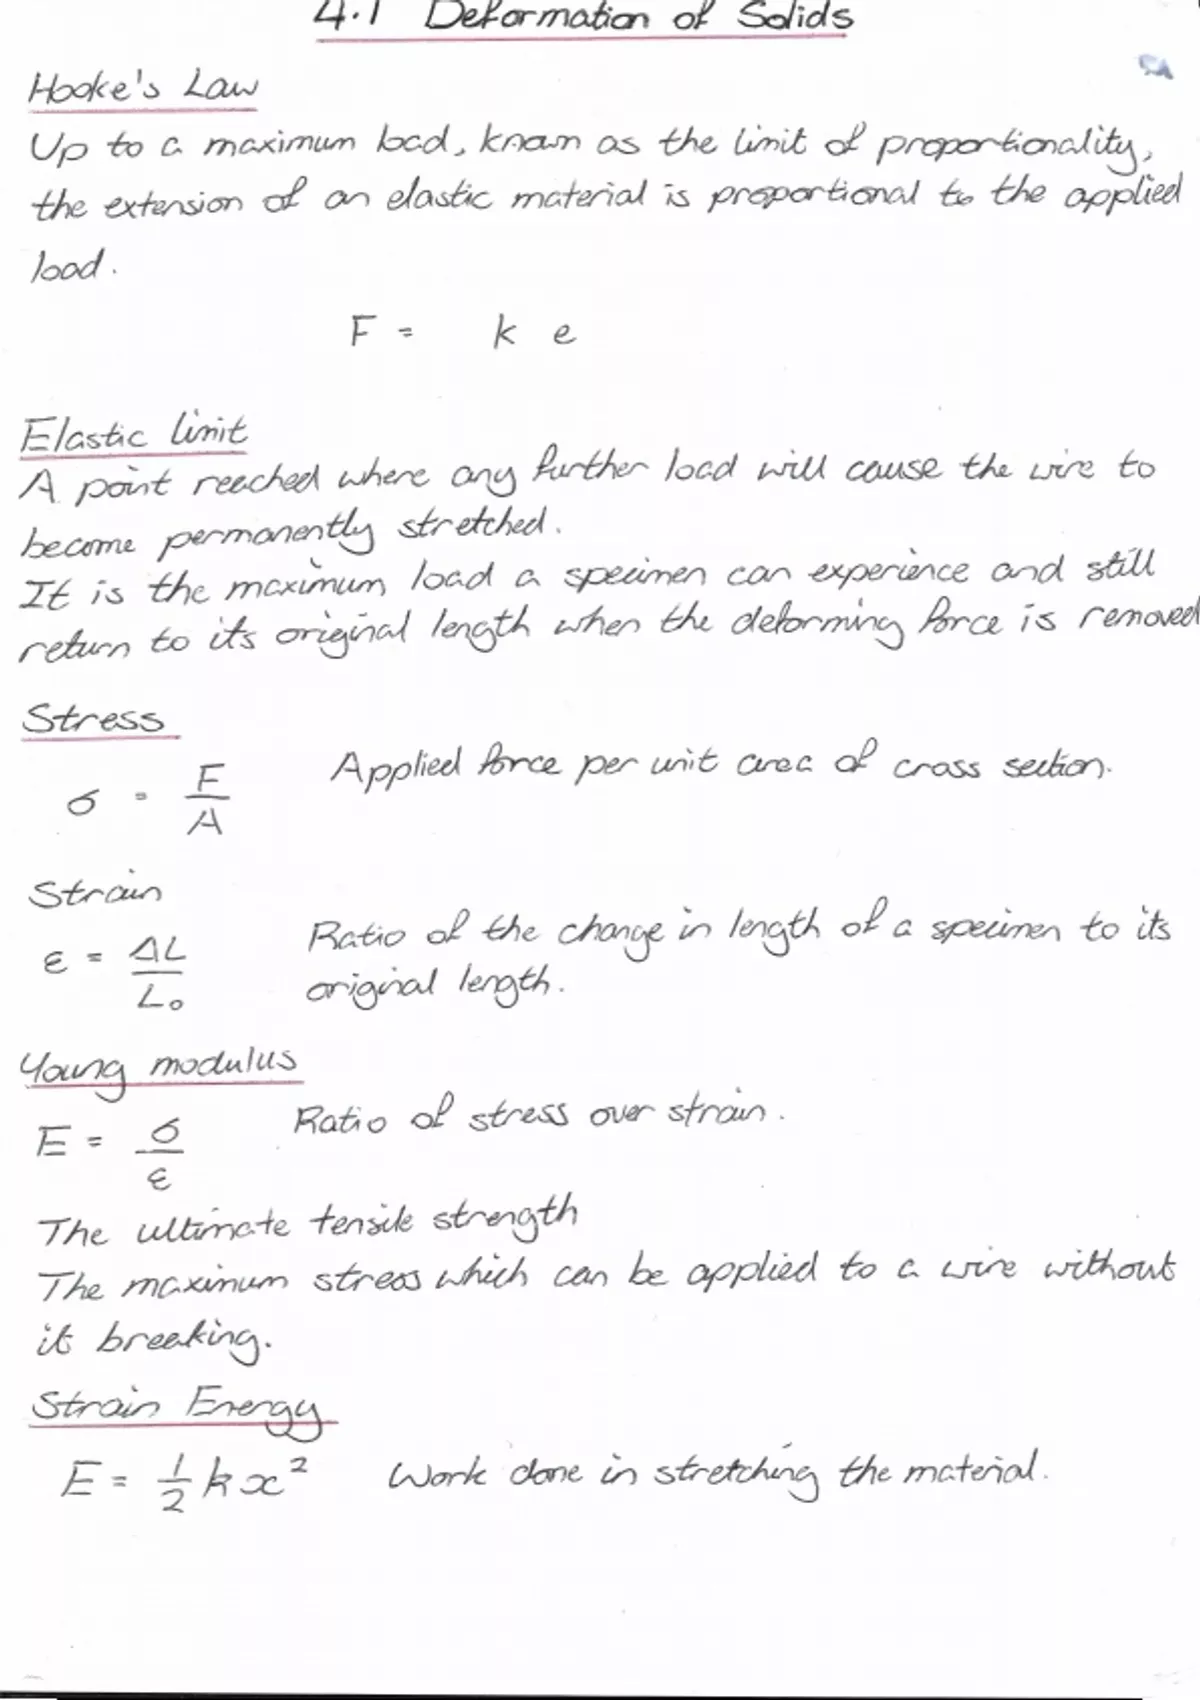 4.1 Deformation of Solids
Hooke's Law
Up to a maximum load, known as the limit of proportionality,
the extension of an elastic material is proportional to the applied
load.
F = k e
Elastic limit
A point reached where any further load will cause the wire to
become permanently stretched.
It is the maximum load a specimen can experience and still
return to its original length when the deforming force is removed
Stress
σ = F/A Applied force per unit area of cross section.
Strain
ε = ΔL/L₀ Ratio of the change in length of a specimen to its
original length.
Young modulus
E = σ/ε Ratio of stress over strain.
The ultimate tensile strength
The maximum stress which can be applied to a wire without
it breaking.
Strain Energy
E = 1/2 kx² Work done in stretching the material.